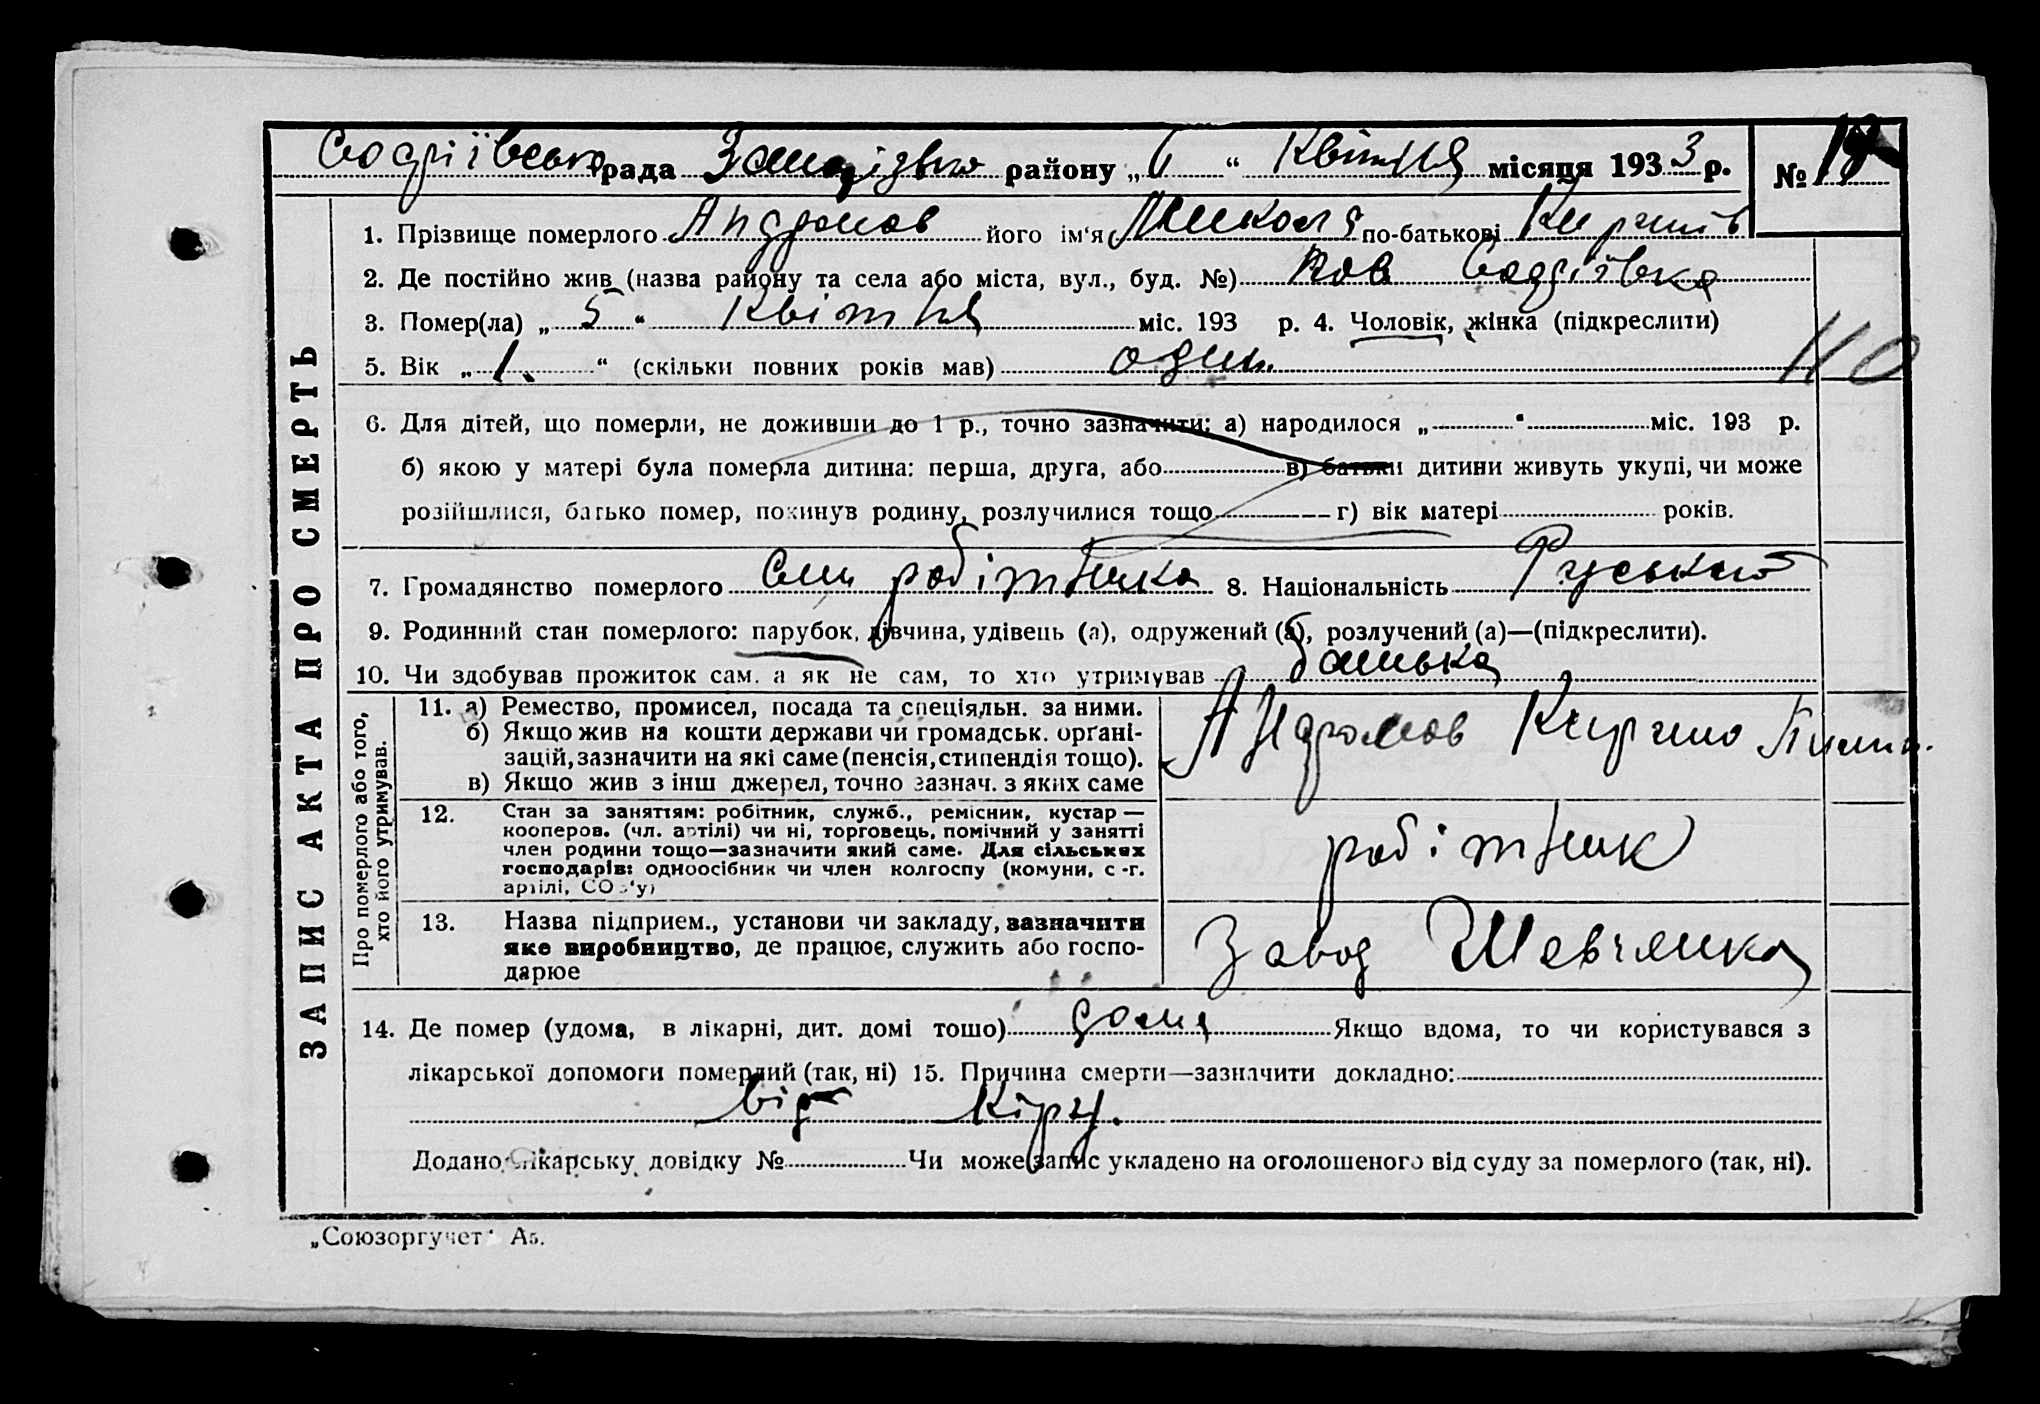 Софіївсько рада Запорізько району „6“ Квітня місяця 1933 р. №
1. Прізвище померлого Андронов його ім'я Микола по-батькові
2. Де постійно жив (назва району та села або міста, вул., буд. №) Софіївка
3. Помер(ла) „5“ Квітня міс. 193 р. 4. Чоловік, жінка (підкреслити)
5. Вік „1.“ (скільки повних років мав) один.
110
6. Для дітей, що померли, не доживши до 1 р., точно зазначити: а) народилося „ “ міс. 193 р.
б) якою у матері була померла дитина: перша, друга, або в) батьки дитини живуть укупі, чи може
розійшлися, батько помер, покинув родину, розлучилися тощо г) вік матері років.
7. Громадянство померлого Син робітника 8. Національність Руський
9. Родинний стан померлого: парубок, дівчина, удівець (а), одружений (а), розлучений (а)—(підкреслити).
10. Чи здобував прожиток сам, а як не сам, то хто утримував батька
ЗАПИС АКТА ПРО СМЕРТЬ
Про померлого або того, хто його утримував.
11. а) Ремество, промисел, посада та спеціяльн. за ними.
б) Якщо жив на кошти держави чи громадськ. орґані-
зацій, зазначити на які саме (пенсія, стипендія тощо).
в) Якщо жив з інш джерел, точно зазнач. з яких саме
Андронов
12. Стан за заняттям: робітник, служб., ремісник, кустар —
кооперов. (чл. артілі) чи ні, торговець, помічний у занятті
член родини тощо—зазначити який саме. Для сільських
господарів: одноосібник чи член колгоспу (комуни, с.-г.
артілі, СОЗ'у)
робітник
13. Назва підприєм., установи чи закладу, зазначити
яке виробництво, де працює, служить або госпо-
дарює
Завод Шевченка
14. Де помер (удома, в лікарні, дит. домі тощо) дома Якщо вдома, то чи користувався з
лікарської допомоги померлий (так, ні) 15. Причина смерти—зазначити докладно:
від кіру.
Додано лікарську довідку № Чи може запис укладено на оголошеного від суду за померлого (так, ні).
„Союзоргучет“ А5.